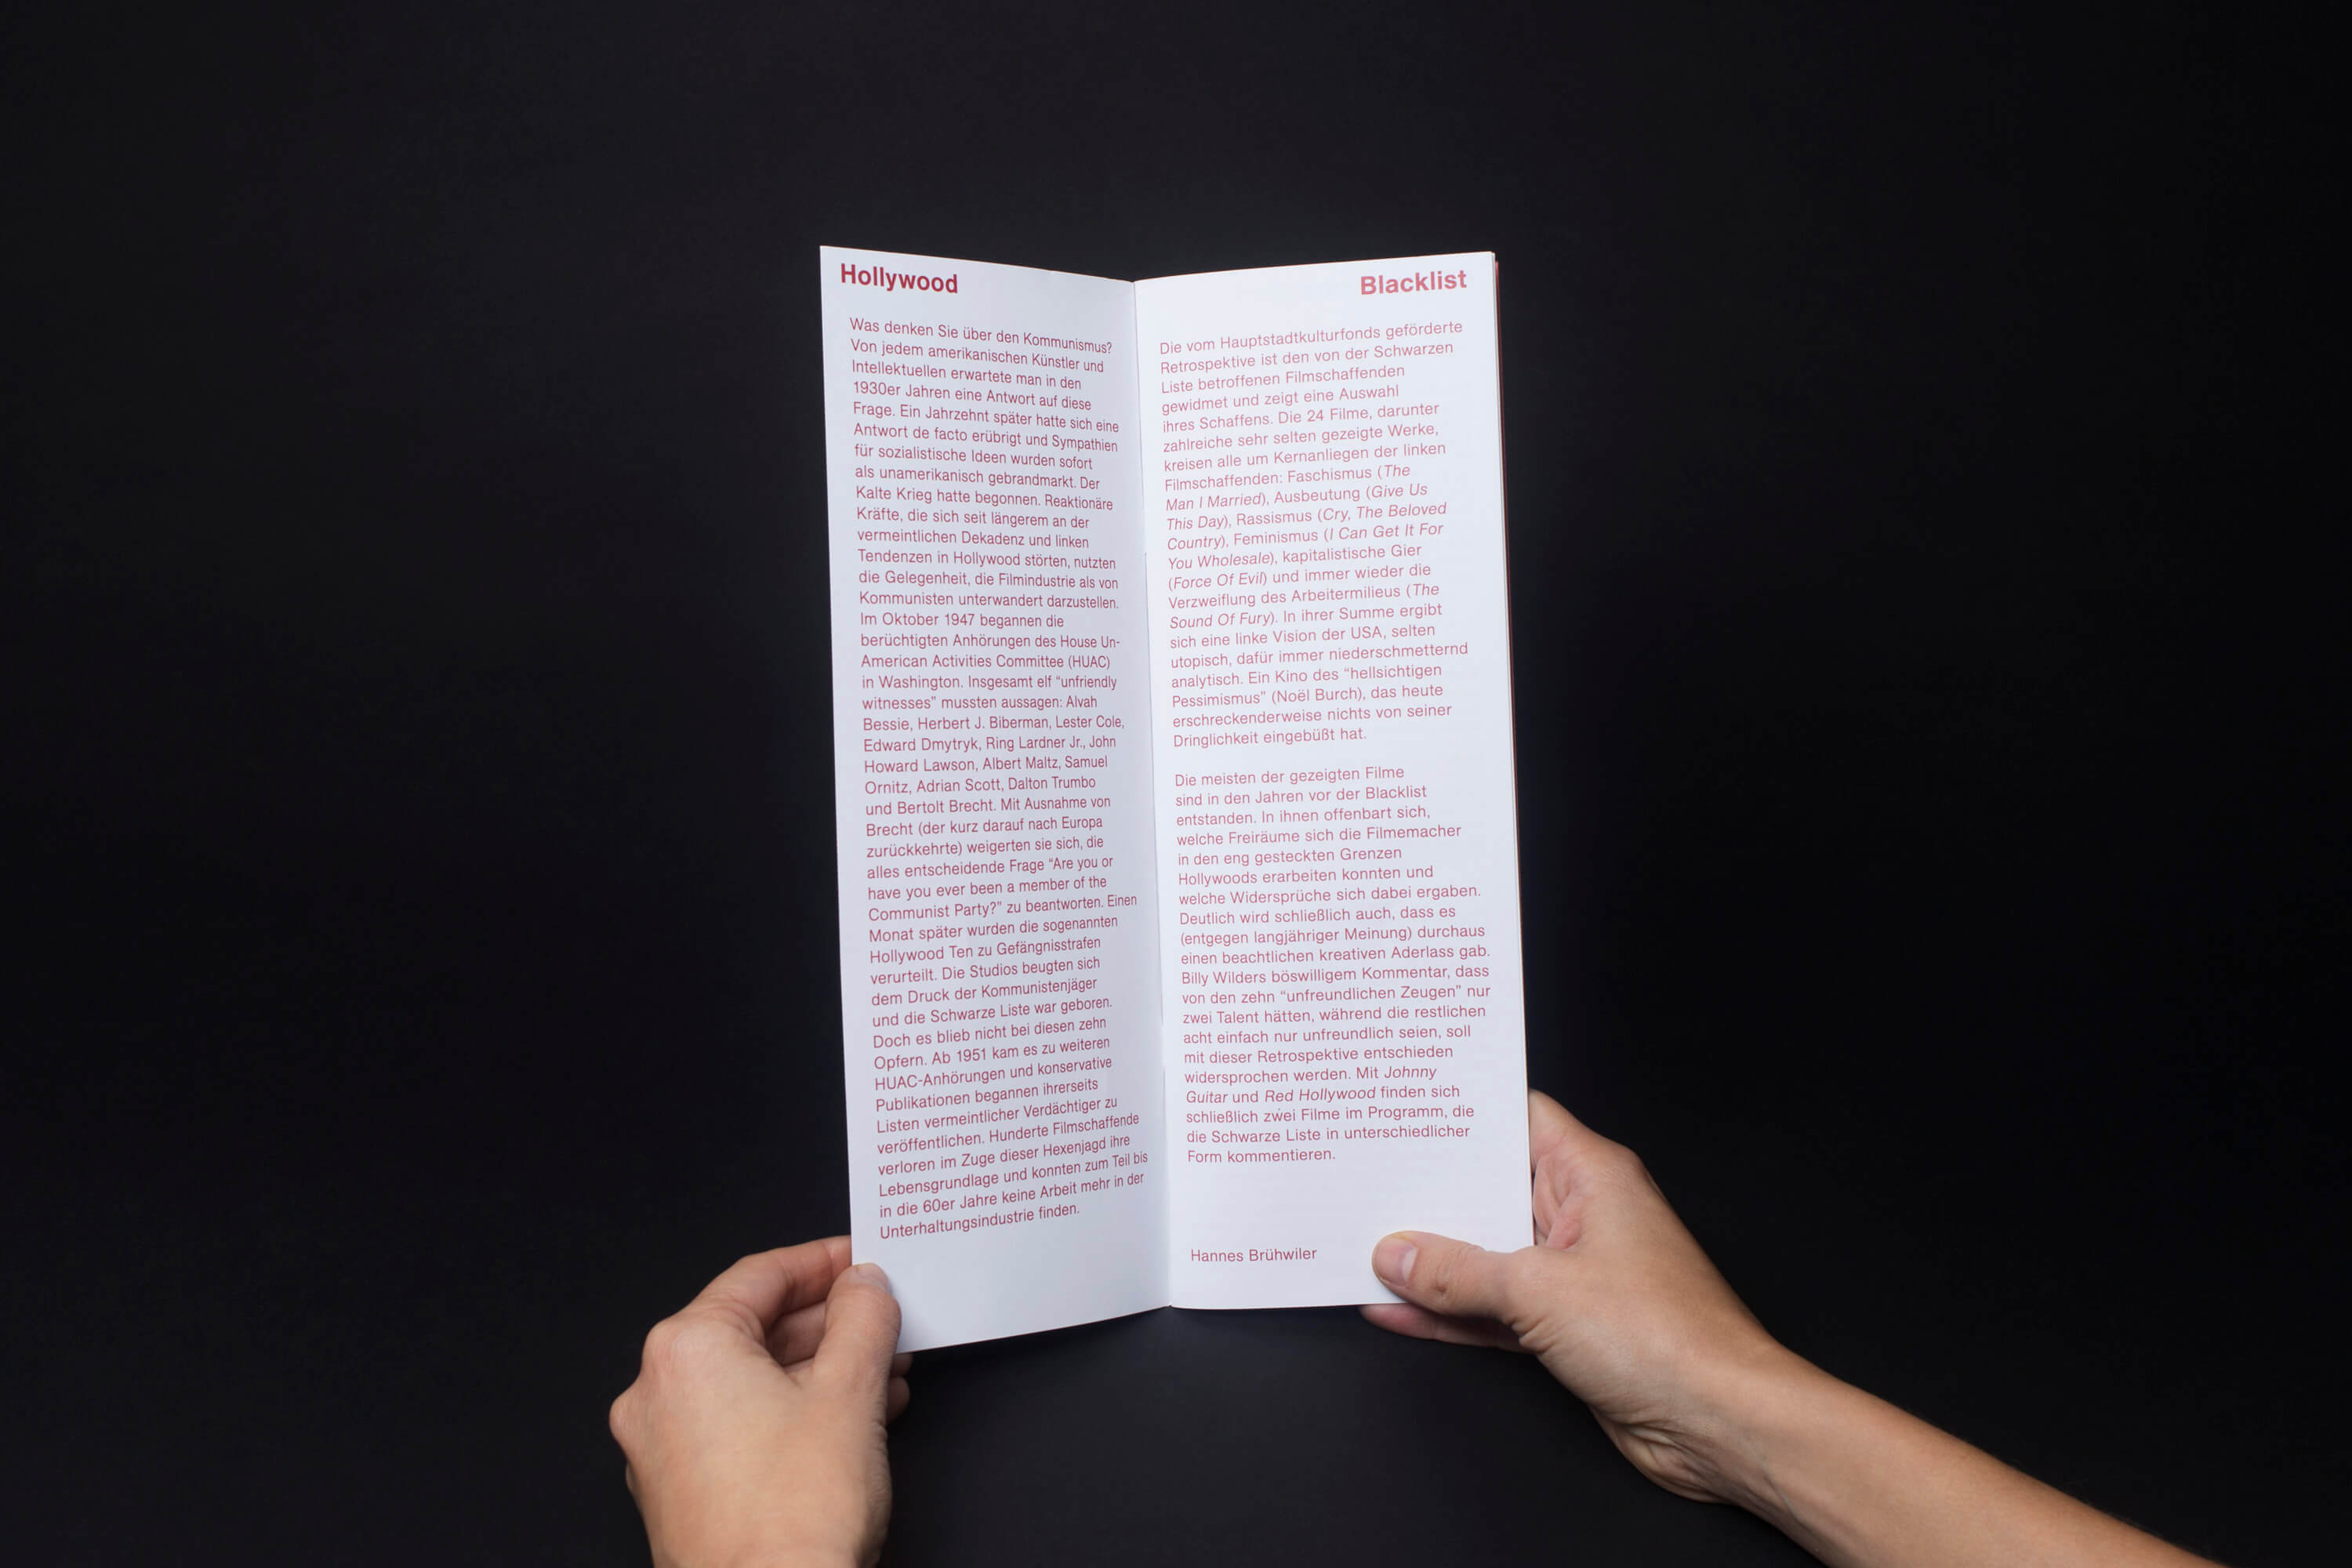 Hollywood
Was denken Sie über den Kommunismus?
Von jedem amerikanischen Künstler und
Intellektuellen erwartete man in den
1930er Jahren eine Antwort auf diese
Frage. Ein Jahrzehnt später hatte sich eine
Antwort de facto erübrigt und Sympathien
für sozialistische Ideen wurden sofort
als unamerikanisch gebrandmarkt. Der
Kalte Krieg hatte begonnen. Reaktionäre
Kräfte, die sich seit längerem an der
vermeintlichen Dekadenz und linken
Tendenzen in Hollywood störten, nutzten
die Gelegenheit, die Filmindustrie als von
Kommunisten unterwandert darzustellen.
Im Oktober 1947 begannen die
berüchtigten Anhörungen des House Un-
American Activities Committee (HUAC)
in Washington. Insgesamt elf “unfriendly
witnesses” mussten aussagen: Alvah
Bessie, Herbert J. Biberman, Lester Cole,
Edward Dmytryk, Ring Lardner Jr., John
Howard Lawson, Albert Maltz, Samuel
Ornitz, Adrian Scott, Dalton Trumbo
und Bertolt Brecht. Mit Ausnahme von
Brecht (der kurz darauf nach Europa
zurückkehrte) weigerten sie sich, die
alles entscheidende Frage “Are you or
have you ever been a member of the
Communist Party?” zu beantworten. Einen
Monat später wurden die sogenannten
Hollywood Ten zu Gefängnisstrafen
verurteilt. Die Studios beugten sich
dem Druck der Kommunistenjäger
und die Schwarze Liste war geboren.
Doch es blieb nicht bei diesen zehn
Opfern. Ab 1951 kam es zu weiteren
HUAC-Anhörungen und konservative
Publikationen begannen ihrerseits
Listen vermeintlicher Verdächtiger zu
veröffentlichen. Hunderte Filmschaffende
verloren im Zuge dieser Hexenjagd ihre
Lebensgrundlage und konnten zum Teil bis
in die 60er Jahre keine Arbeit mehr in der
Unterhaltungsindustrie finden.
Blacklist
Die vom Hauptstadtkulturfonds geförderte
Retrospektive ist den von der Schwarzen
Liste betroffenen Filmschaffenden
gewidmet und zeigt eine Auswahl
ihres Schaffens. Die 24 Filme, darunter
zahlreiche sehr selten gezeigte Werke,
kreisen alle um Kernanliegen der linken
Filmschaffenden: Faschismus (The
Man I Married), Ausbeutung (Give Us
This Day), Rassismus (Cry, The Beloved
Country), Feminismus (I Can Get It For
You Wholesale), kapitalistische Gier
(Force Of Evil) und immer wieder die
Verzweiflung des Arbeitermilieus (The
Sound Of Fury). In ihrer Summe ergibt
sich eine linke Vision der USA, selten
utopisch, dafür immer niederschmetternd
analytisch. Ein Kino des “hellsichtigen
Pessimismus” (Noël Burch), das heute
erschreckenderweise nichts von seiner
Dringlichkeit eingebüßt hat.
Die meisten der gezeigten Filme
sind in den Jahren vor der Blacklist
entstanden. In ihnen offenbart sich,
welche Freiräume sich die Filmemacher
in den eng gesteckten Grenzen
Hollywoods erarbeiten konnten und
welche Widersprüche sich dabei ergaben.
Deutlich wird schließlich auch, dass es
(entgegen langjähriger Meinung) durchaus
einen beachtlichen kreativen Aderlass gab.
Billy Wilders böswilligem Kommentar, dass
von den zehn “unfreundlichen Zeugen” nur
zwei Talent hätten, während die restlichen
acht einfach nur unfreundlich seien, soll
mit dieser Retrospektive entschieden
widersprochen werden. Mit Johnny
Guitar und Red Hollywood finden sich
schließlich zwei Filme im Programm, die
die Schwarze Liste in unterschiedlicher
Form kommentieren.
Hannes Brühwiler